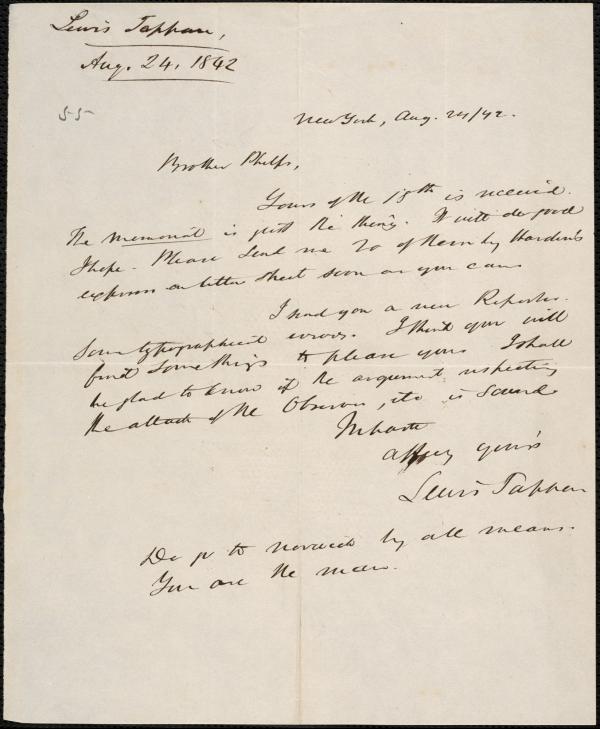 Lewis Tappan,
Aug. 24, 1842
55
New York, Aug. 24/42.
Brother Phelps,
Yours of the 18th is received.
The memorial is just the thing. It will do good
I hope. Please send me 20 of them by Harnden's
express on letter sheet soon as you can
I send you a new Reporter.
Some typographical errors. I think you will
find some things to please you. I shall
be glad to know if the argument respecting
the attack of the Observer, &c is sound
In haste
affy yours
Lewis Tappan
Do go to Norwich by all means.
You are the man.